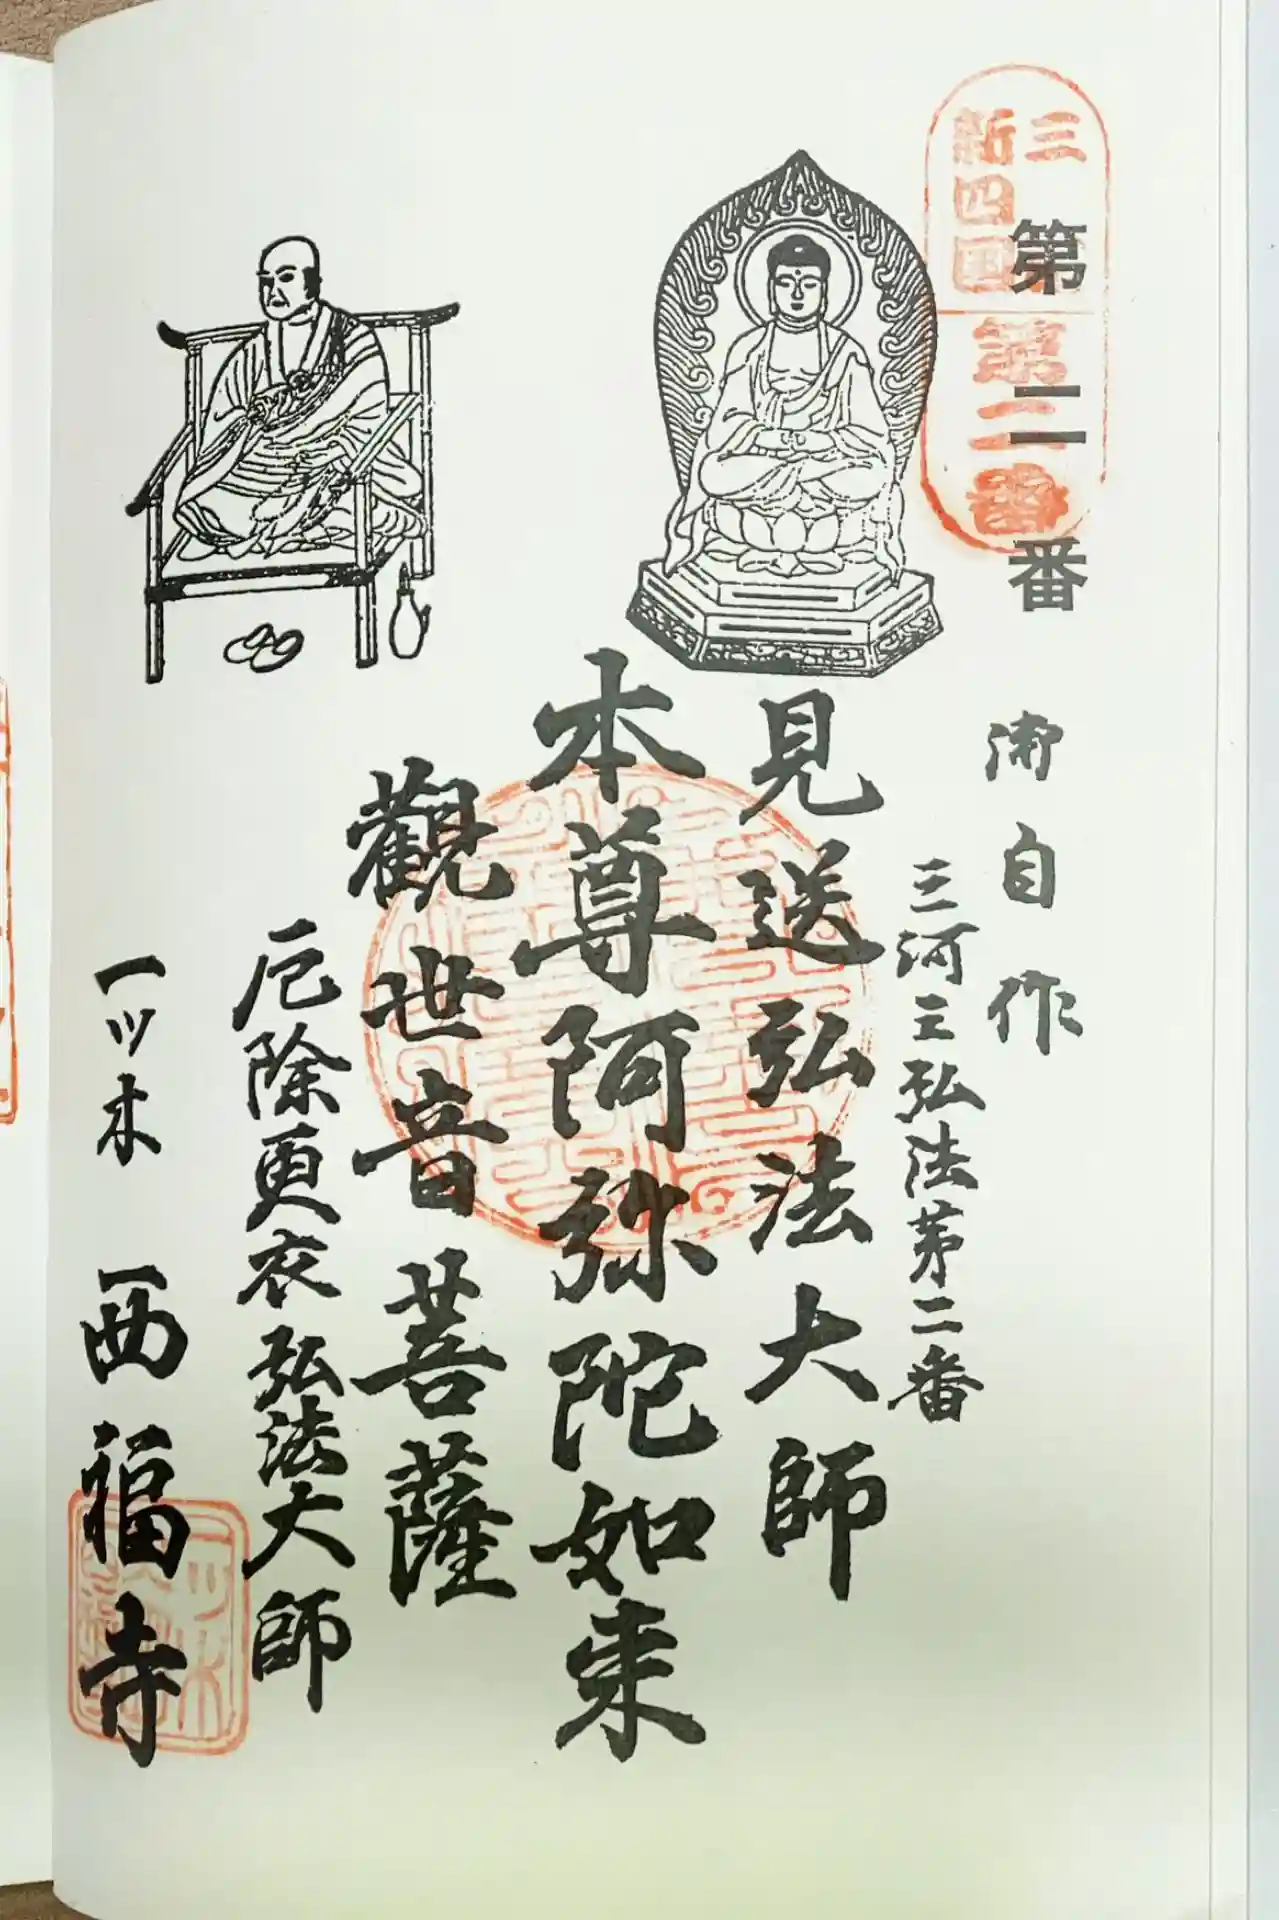 第二番
三河
新四国
第二番
御自作
三河三弘法第二番
見送弘法大師
本尊阿弥陀如来
觀世音菩薩
厄除更衣弘法大師
一ツ木 西福寺